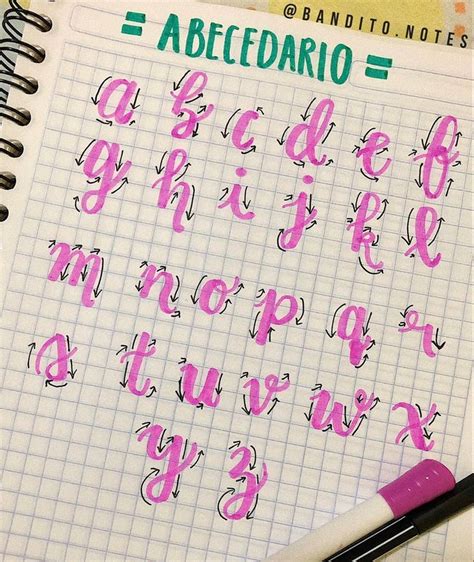 @BANDITO.NOTES
= ABECEDARIO =
a b c d e f
g h i j k l
m n o p q r
s t u v w x
y z